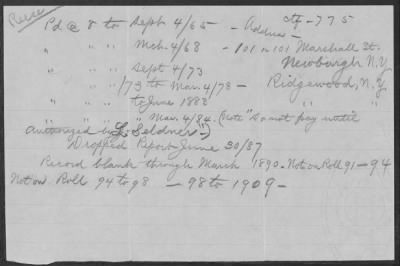 Pd @ 8 to Sept 4/65 - Address - ctf - 775
" " " Mch. 4/68 - 101 n 101 Marshall St.
" " " Sept 4/73 Newburgh N.Y.
" " " /73 to Mar. 4/78 - Ridgewood, N.Y.
" " " to June 1882 " "
" " " " Mar. 4/84. (Note "Do not pay until
authorized by L. Seldner")
Dropped Report June 30/87
Record blank through March 1890 - Not on Roll 91-94
Not on Roll 94 to 98 - 98 to 1909 -